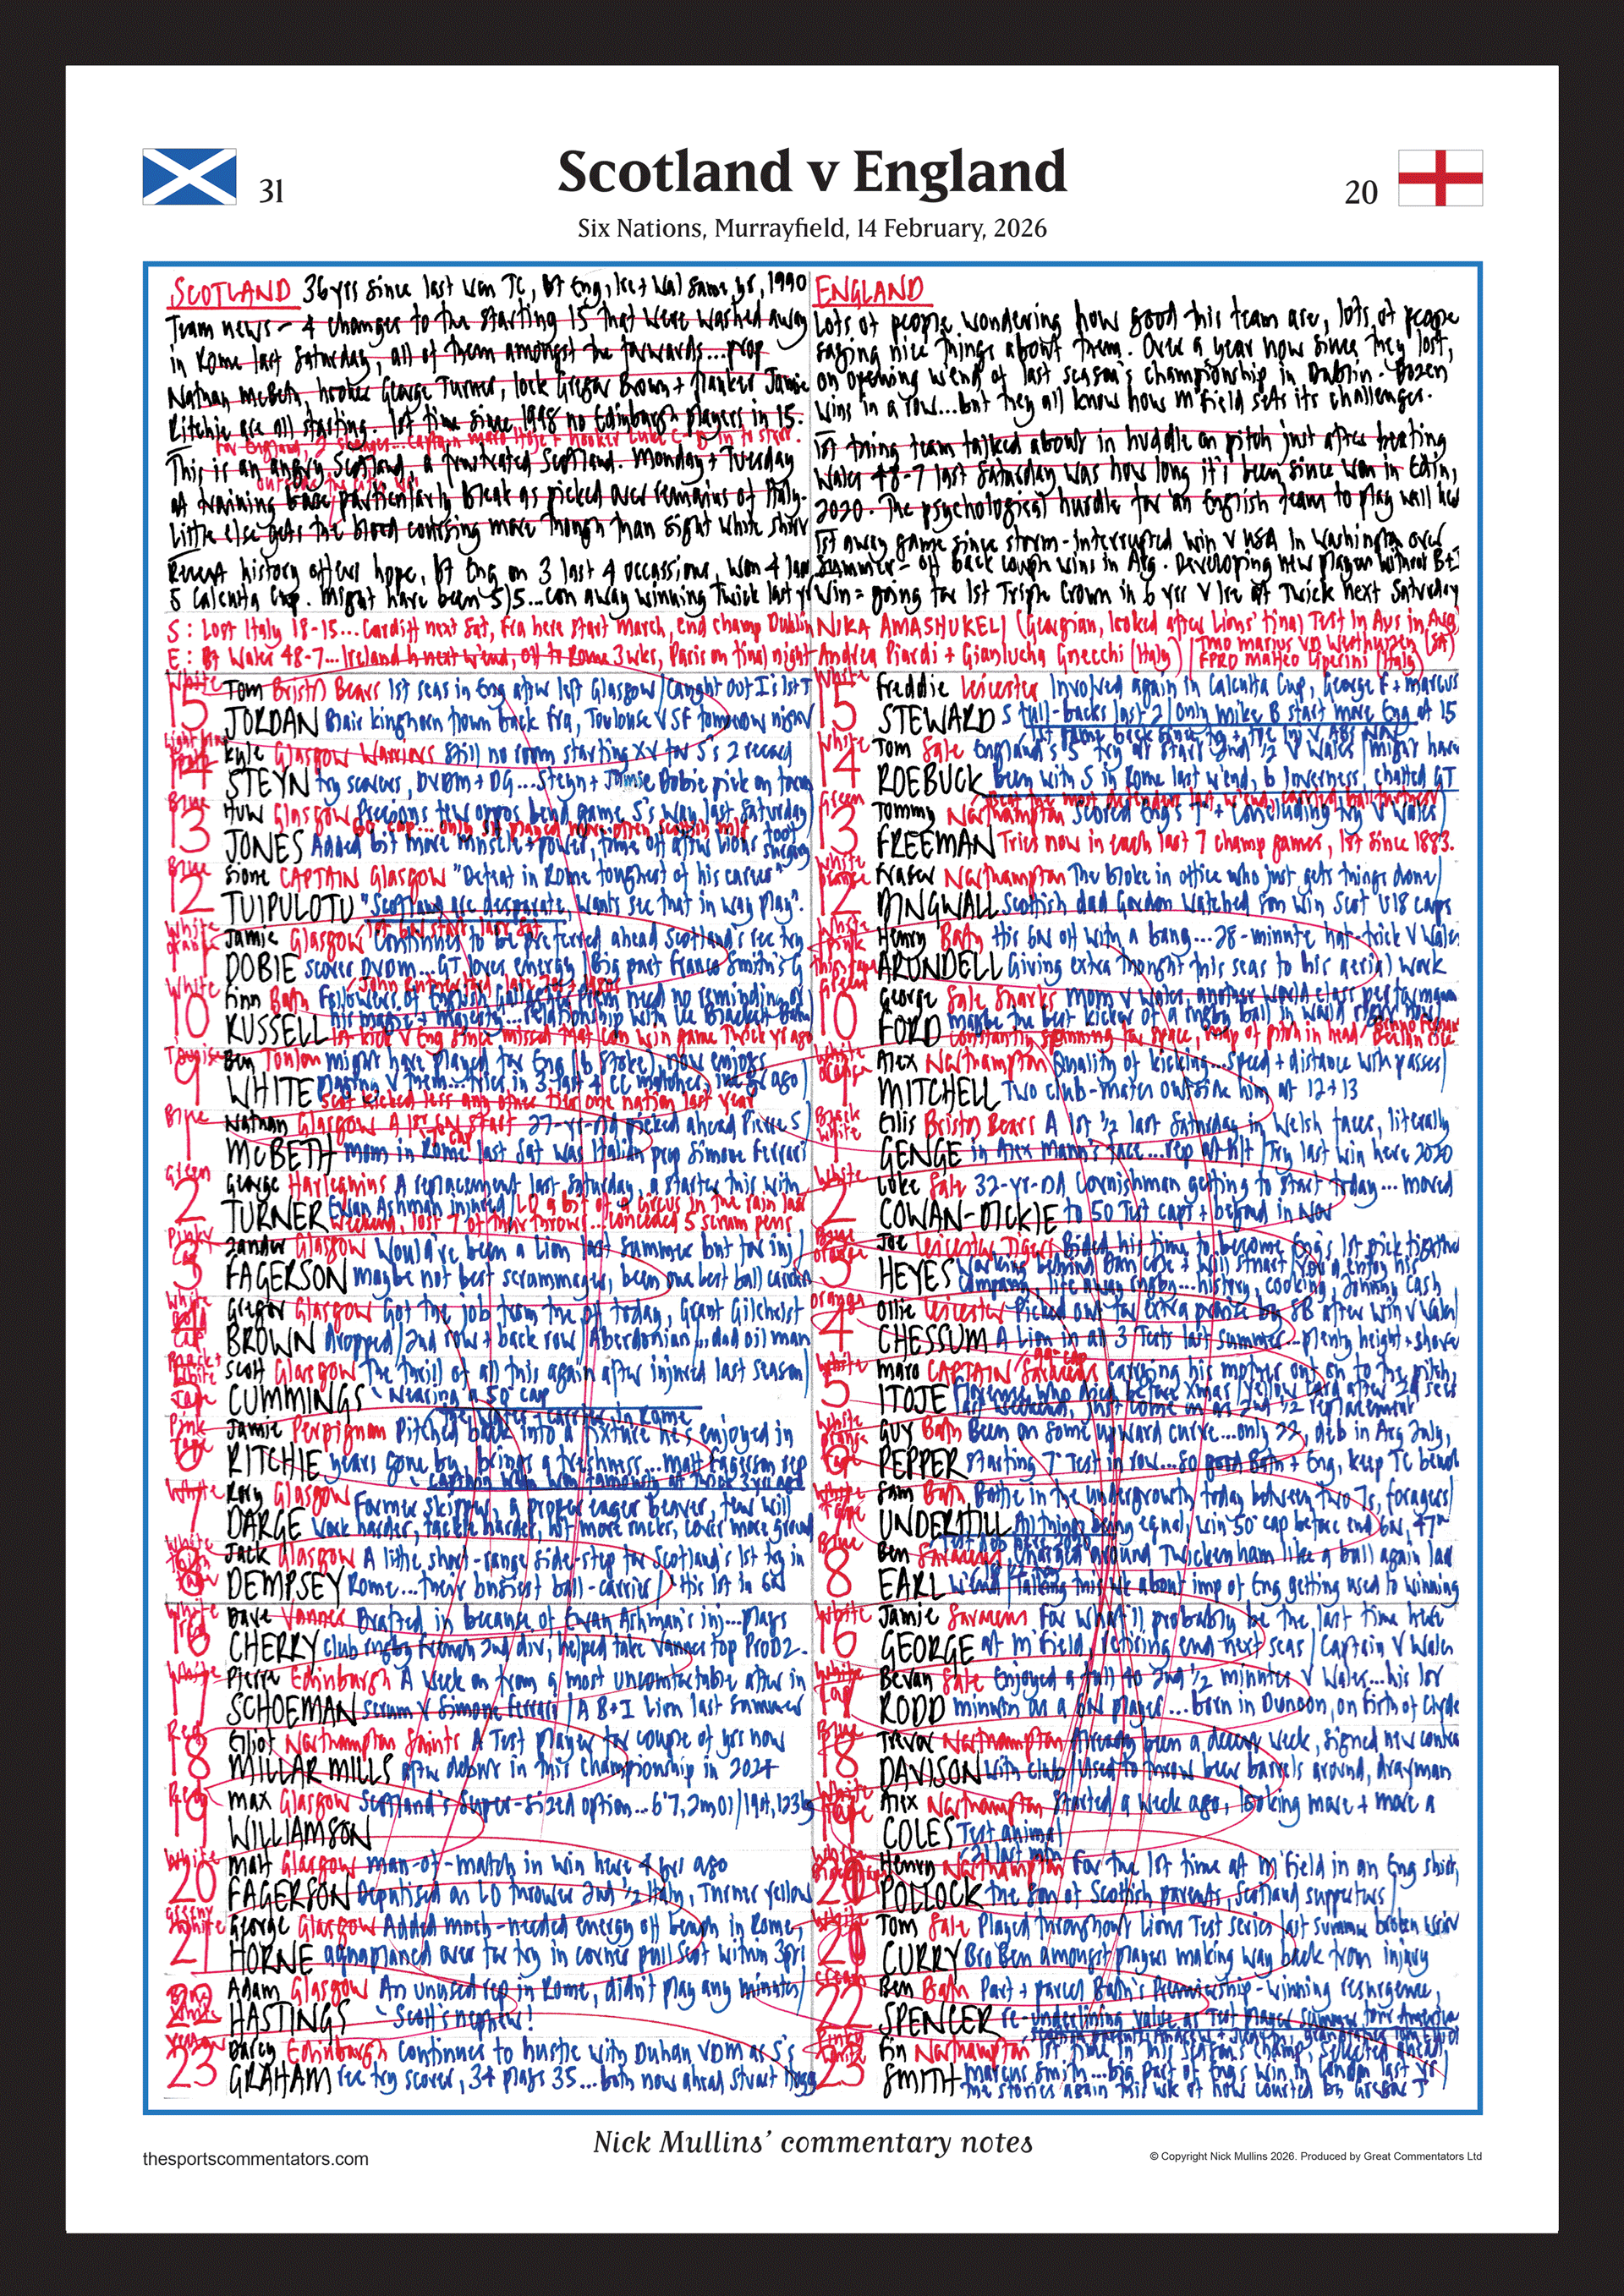 31
Scotland v England
20
Six Nations, Murrayfield, 14 February, 2026
SCOTLAND 36 yrs since last won TC, Bt Eng, Ire + Wal same yr, 1990
Team news - 4 changes to the starting 15 that were washed away
in Rome last Saturday, all of them amongst the forwards...prop
Nathan McBeth, hooker George Turner, lock Gregor Brown + flanker Jamie
Ritchie are all starting. 1st time since 1998 no Edinburgh players in 15.
For England, 2 changes...captain Maro Itoje + hooker Luke C-D in to start.
This is an angry Scotland, a frustrated Scotland. Monday + Tuesday
outside the city was
at training base particularly bleak as picked over remains of Italy.
Little else gets the blood coursing more though than sight white shirt
Recent history offers hope, Bt Eng on 3 last 4 occassions, won 4 last
5 Calcutta Cup. Might have been 5/5...con away winning Twick last yr
S: Lost Italy 18-15...Cardiff next Sat, Fra here start March, end champ Dublin
E: Bt Wales 48-7...Ireland h next w'end, off to Rome 3wks, Paris on final night
ENGLAND
Lots of people wondering how good this team are, lots of people
saying nice things about them. Over a year now since they lost,
on opening w'end of last season's championship in Dublin. Dozen
wins in a row...but they all know how M'field sets its challenges.
1st thing team talked about in huddle on pitch just after beating
Wales 48-7 last Saturday was how long it's been since won in Edin,
2020. The psychological hurdle for an English team to play will here
1st away game since storm-interrupted win v USA in Washington over
summer - off back couple wins in Arg. Developing new players without B+I
Win = going for 1st Triple Crown in 6 yrs v Ire at Twick next Saturday
NIKA AMASHUKELI (Georgian, looked after Lions' final Test in Aus in Aug)
Andrea Piardi + Gianlucha Gnecchi (Italy)
TMO Marius VD Westhuizen (SA)
FPRO Matteo Liperini (Italy)
White
15 Tom Bristol Bears 1st seas in Eng after left Glasgow/Caught out I's 1st T
JORDAN Blair Kinghorn flown back Fra, Toulouse v SF tomorrow night
14 Kyle Glasgow Warriors Still no room starting XV for S's 2 record
STEYN try scorers, DVDM + DG...Steyn + Jamie Dobie pick on form
Blue
13 Huw Glasgow Precious few oppos bend game S's way last Saturday
60 cap...only SH played more often Scottish mid
JONES Added bit more muscle + power, time off after Lions foot surgery
Blue
12 Sione CAPTAIN Glasgow "Defeat in Rome toughest of his career"
TUIPULOTU "Scotland are desperate, wants see that in way play".
White orange
11 Jamie Glasgow Continues to be preferred ahead Scotland's rec try
1st 6N start last Sat
DOBIE scorer DVDM...GT loves energy/Big part Franco Smith's G
White
10 Finn Bath Followers of English Gallagher Prem need no reminding of
RUSSELL his magic + majesty...relationship with
1st kick v Eng since missed that con win game Twick yr ago
9 Ben Toulon might have played for Eng (b Stoke), now enjoys
WHITE playing v them...tries in 3 last 4 CC matches, inc yr ago
Scot kicked less any other tier one nation last year
Blue
1 Nathan Glasgow A 1st 6N start 27-yr-old picked ahead Pierre S
McBETH Mom in Rome last Sat was Italian prop Simone Ferrari
Green
2 George Harlequins A replacement last Saturday, a starter this with
TURNER Ewan Ashman injured/LO a bit of a circus in the rain last
weekend, lost 7 of their throws...conceded 5 scrum pens
Pinky
3 Zander Glasgow Would've been a Lion last summer but for inj
FAGERSON maybe not best scrummager, been one best ball carriers
4 Gregor Glasgow Got the job from the off today, Grant Gilchrist
BROWN dropped/2nd row + back row/Aberdonian...dad oil man
5 Scott Glasgow The thrill of all this again after injured last season
CUMMINGS Wearing a 50th cap
The water-carrier in Rome
Pink Tape
6 Jamie Perpignan Pitched back into a fixture he's enjoyed in
RITCHIE years gone by, brings a freshness...Matt Fagerson rep
Captain when won famously at Twick 3 yrs ago
White
7 Rory Glasgow Former skipper, a proper eager beaver, few will
DARGE work harder, tackle harder, hit more rucks, cover more ground
8 Jack Glasgow A lithe, short-range side-step for Scotland's 1st try in
DEMPSEY Rome...their busiest ball-carrier/His 1st in 6N
White red
16 Dave Vannes Drafted in because of Ewan Ashman's inj...plays
CHERRY club rugby French 2nd div, helped take Vannes top ProD2.
White
17 Pierre Edinburgh A week on from a most uncomfortable after in
SCHOEMAN scrum v Simone Ferrari/A B+I Lion last summer
Red
18 Elliot Northampton Saints A Test player for couple of yrs now
MILLAR MILLS after debut in this championship in 2024
Red
19 Max Glasgow Scotland's super-sized option...6'7, 2m01/19st, 123kg
WILLIAMSON
White
20 Matt Glasgow man-of-match in win here 4 yrs ago
FAGERSON Deputised as LO thrower 2nd ½ Italy, Turner yellow
21 George Glasgow Added much-needed energy off bench in Rome,
HORNE aquaplaned over for try in corner pull Scot within 3pts
22 Adam Glasgow An unused rep in Rome, didn't play any minutes
HASTINGS Scott's nephew!
Yellow
23 Darcy Edinburgh Continues to hustle with Duhan VDM as S's
GRAHAM rec try scorer, 34 plays 35...both now ahead Stuart Hogg
White
15 Freddie Leicester Involved again in Calcutta Cup, George F + Marcus
STEWARD S full-backs last 2/Only Mike B start more Eng at 15
White
14 Tom Sale England's 5th try at start 2nd ½ v Wales/might have
ROEBUCK been with S in Rome last w'end, b Inverness/chatted GT
Green
13 Tommy Northampton Scored Eng's 7th + concluding try v Wales
FREEMAN Tries now in each last 7 champ games, 1st since 1883.
12 Fraser Northampton The bloke in office who just gets things done
DINGWALL Scottish dad Gordon watched son win Scot U18 caps
White pink
11 Henry Bath His 6N off with a bang...28-minute hat-trick v Wales
ARUNDELL Giving extra thought this seas to his aerial work
10 George Sale Sharks Mom v Wales, another world class performance
FORD maybe the best kicker of a rugby ball in world right now
constantly scanning for space, map of pitch in head
9 Alex Northampton Quality of kicking...speed + distance with passes
MITCHELL Two club-mates outside him at 12+13
Black White
1 Ellis Bristol Bears A 1st ½ last Saturday in Welsh faces, literally
GENGE in Alex Mann's face...rep at h/t/Try last win here 2020
White
2 Luke Sale 32-yr-old Cornishman getting to start today...moved
COWAN-DICKIE to 50 Test caps + beyond in Nov
Blue orange
3 Joe Leicester Tigers Bided his time to become Eng's 1st pick tighthead
HEYES working behind Dan Cole + Will Stuart/You'd enjoy his
company, life away rugby...history, cooking, Johnny Cash
Orange
4 Ollie Leicester Picked out for extra praise by SB after win v Wales
CHESSUM A Lion in all 3 Tests last summer...plenty height + shove
White
5 Maro CAPTAIN Saracens Carrying his mother on to the pitch,
ITOJE Florence who died before Xmas/
last weekend, just come on as 2nd ½ replacement
6 Guy Bath Been on some upward curve...only 22, deb in Arg July,
PEPPER starting 7th Test in row...so good Bath + Eng, keep TC bench
7 Sam Bath Battle in the undergrowth today between two 7s, foragers
UNDERHILL All things being equal, win 50th cap before end 6N, 47th
Blue
8 Ben Saracens Charged around Twickenham like a ball again last
EARL w'end/Talking this wk about imp of Eng getting used to winning
White
16 Jamie Saracens For what'll probably be the last time here
GEORGE at M'field, retiring end next seas/Captain v Wales
17 Bevan Sale Enjoyed a full 40 2nd ½ minutes v Wales...his 1st
RODD minutes as a 6N player...born in Dunoon, on Firth of Clyde
Blue
18 Trevor Northampton Already been a decent week, signed new contract
DAVISON with club/Used to throw beer barrels around, drayman
White Tape
19 Alex Northampton Started a week ago, looking more + more a
COLES Test animal
20 Henry Northampton For the 1st time at M'field in an Eng shirt,
POLLOCK the son of Scottish parents, Scotland supporters
21 Tom Sale Played throughout Lions Test series last summer broken wrist
CURRY Bro Ben amongst players making way back from injury
22 Ben Bath Part + parcel Bath's Premiership-winning resurgence,
SPENCER re-underlining value as Test player summer tour Americas
23 Fin Northampton 1st time in this season's champ, selected ahead,
SMITH Marcus Smith...big part of Eng's win in London last yr
the stories again this wk of how courted by Gregor T
Nick Mullins' commentary notes
thesportscommentators.com
© Copyright Nick Mullins 2026. Produced by Great Commentators Ltd